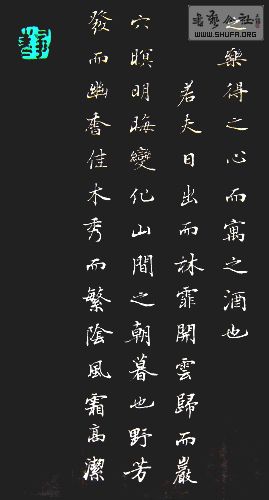 WWW.SHUFA.ORG
樂得之心而寓之酒也
若夫日出而林霏開雲歸而巖
穴暝明晦變化山間之朝暮也野芳
發而幽香佳木秀而繁陰風霜高潔